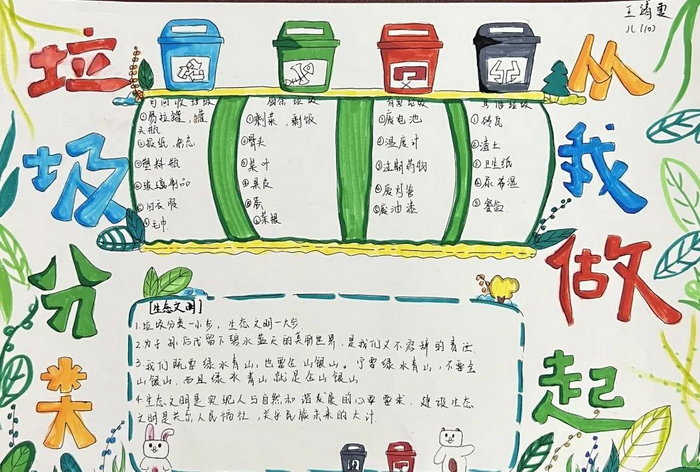 垃圾分类
从我做起
八(10)
可回收垃圾
①易拉罐,罐
头瓶
②报纸,杂志
③塑料瓶
④玻璃制品
⑤旧衣服
⑥毛巾
厨余垃圾
①剩菜,剩饭
②骨头
③菜叶
④果皮
⑥菜根
有害垃圾
①废电池
②温度计
③过期药物
④废灯管
⑤废油漆
其他垃圾
①砖瓦
②渣土
③卫生纸
④尿布湿
[生态文明]
1.垃圾分类一小步,生态文明一大步
2.为子孙后代留下碧水蓝天的美丽世界,是我们义不容辞的责任
3.我们既要绿水青山,也要金山银山。宁要绿水青山,不要金
山银山,而且绿水青山就是金山银山
4.生态文明是实现人与自然和谐发展的必要要求,建设生态
文明是关乎人民福祉,关乎民族未来的大计.